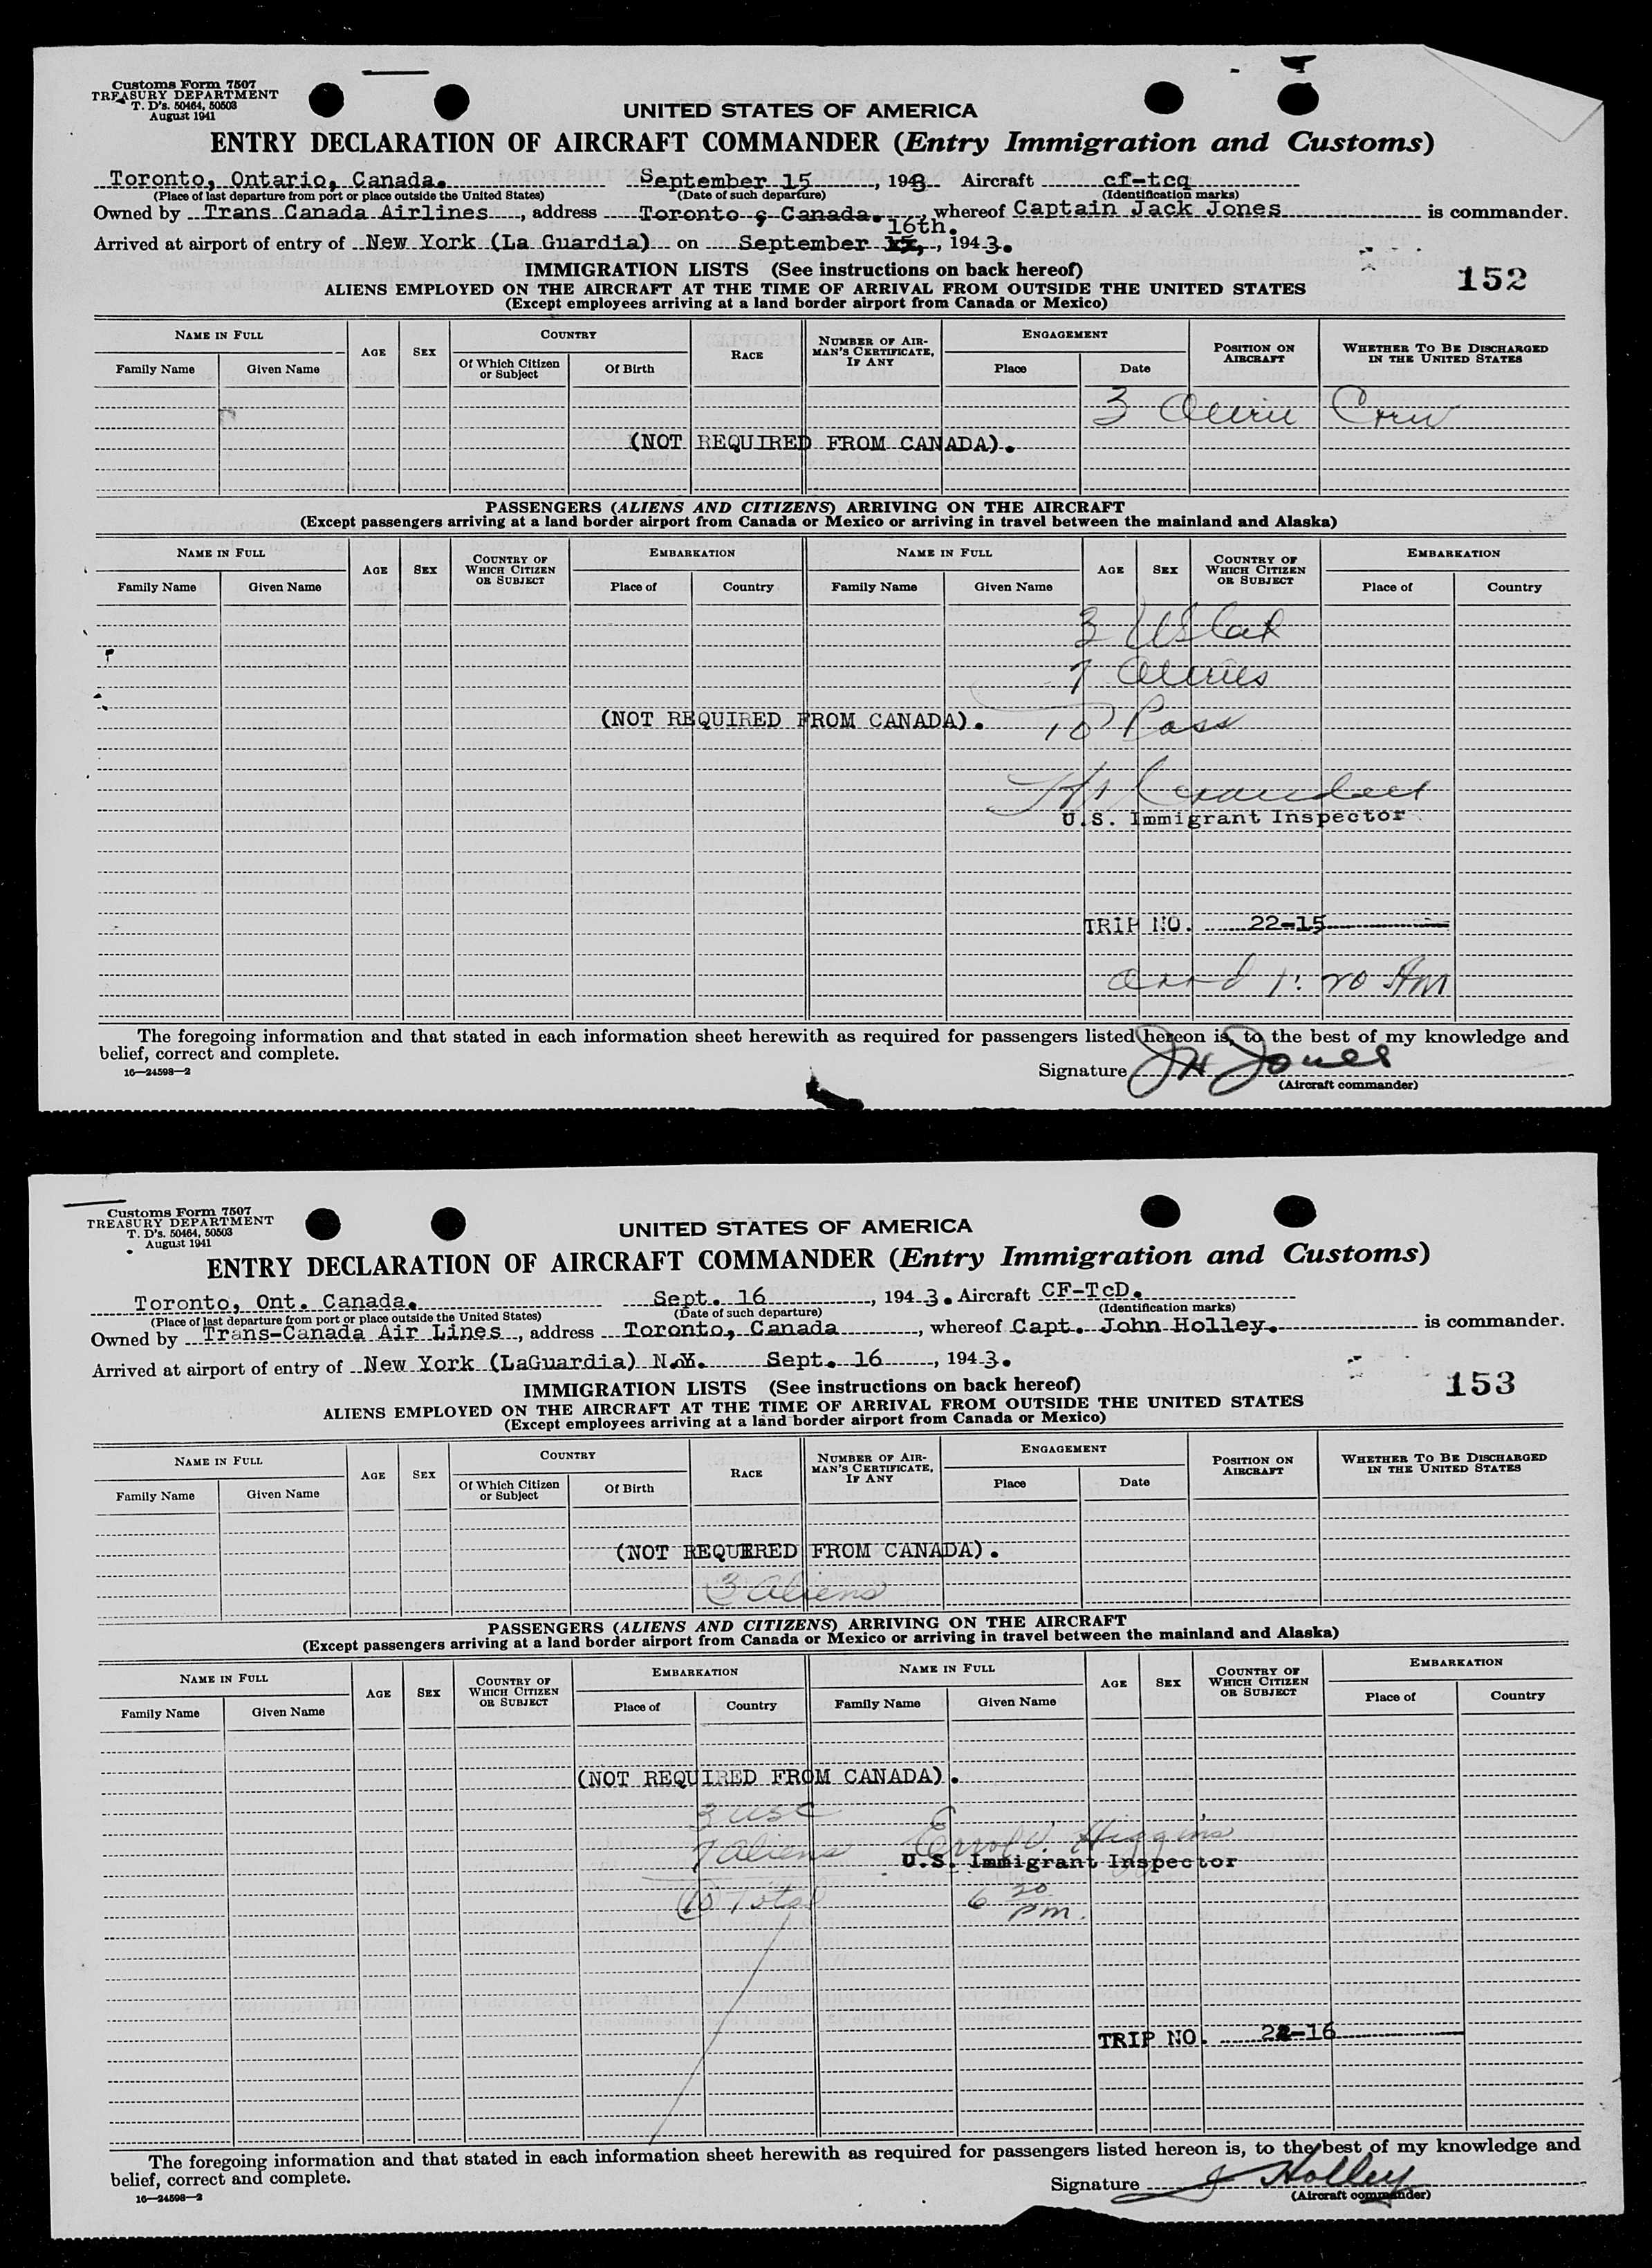 Customs Form 7507
TREASURY DEPARTMENT
T. D's. 50464, 50503
August 1941
UNITED STATES OF AMERICA
ENTRY DECLARATION OF AIRCRAFT COMMANDER (Entry Immigration and Customs)
Toronto, Ontario, Canada. September 15, 1943 Aircraft cf-tcq
(Place of last departure from port or place outside the United States) (Date of such departure) (Identification marks)
Owned by Trans Canada Airlines, address Toronto, Canada., whereof Captain Jack Jones is commander.
16th.
Arrived at airport of entry of New York (La Guardia) on September 15, 1943.
IMMIGRATION LISTS (See instructions on back hereof)
152
ALIENS EMPLOYED ON THE AIRCRAFT AT THE TIME OF ARRIVAL FROM OUTSIDE THE UNITED STATES
(Except employees arriving at a land border airport from Canada or Mexico)
NAME IN FULL AGE SEX COUNTRY RACE NUMBER OF AIRMAN'S CERTIFICATE, IF ANY ENGAGEMENT POSITION ON AIRCRAFT WHETHER TO BE DISCHARGED IN THE UNITED STATES
Family Name Given Name Of Which Citizen or Subject Of Birth Place Date
3 Alien Crew
(NOT REQUIRED FROM CANADA).
PASSENGERS (ALIENS AND CITIZENS) ARRIVING ON THE AIRCRAFT
(Except passengers arriving at a land border airport from Canada or Mexico or arriving in travel between the mainland and Alaska)
NAME IN FULL AGE SEX COUNTRY OF WHICH CITIZEN OR SUBJECT EMBARKATION NAME IN FULL AGE SEX COUNTRY OF WHICH CITIZEN OR SUBJECT EMBARKATION
Family Name Given Name Place of Country Family Name Given Name Place of Country
3 US
7 Aliens
(NOT REQUIRED FROM CANADA).
10 Pass
U.S. Immigrant Inspector
TRIP NO. 22-15
arrd 1:20 AM
The foregoing information and that stated in each information sheet herewith as required for passengers listed hereon is, to the best of my knowledge and
belief, correct and complete.
16—24598—2
Signature J H Jones
(Aircraft commander)
Customs Form 7507
TREASURY DEPARTMENT
T. D's. 50464, 50503
August 1941
UNITED STATES OF AMERICA
ENTRY DECLARATION OF AIRCRAFT COMMANDER (Entry Immigration and Customs)
Toronto, Ont. Canada. Sept. 16, 1943. Aircraft CF-TcD.
(Place of last departure from port or place outside the United States) (Date of such departure) (Identification marks)
Owned by Trans-Canada Air Lines, address Toronto, Canada, whereof Capt. John Holley. is commander.
Arrived at airport of entry of New York (LaGuardia) N.Y. Sept. 16, 1943.
IMMIGRATION LISTS (See instructions on back hereof)
153
ALIENS EMPLOYED ON THE AIRCRAFT AT THE TIME OF ARRIVAL FROM OUTSIDE THE UNITED STATES
(Except employees arriving at a land border airport from Canada or Mexico)
NAME IN FULL AGE SEX COUNTRY RACE NUMBER OF AIRMAN'S CERTIFICATE, IF ANY ENGAGEMENT POSITION ON AIRCRAFT WHETHER TO BE DISCHARGED IN THE UNITED STATES
Family Name Given Name Of Which Citizen or Subject Of Birth Place Date
(NOT REQUERED FROM CANADA).
3 aliens
PASSENGERS (ALIENS AND CITIZENS) ARRIVING ON THE AIRCRAFT
(Except passengers arriving at a land border airport from Canada or Mexico or arriving in travel between the mainland and Alaska)
NAME IN FULL AGE SEX COUNTRY OF WHICH CITIZEN OR SUBJECT EMBARKATION NAME IN FULL AGE SEX COUNTRY OF WHICH CITIZEN OR SUBJECT EMBARKATION
Family Name Given Name Place of Country Family Name Given Name Place of Country
(NOT REQUIRED FROM CANADA).
3 USC
7 aliens Errol V. Higgins
U.S. Immigrant Inspector
10 Total 6 20 pm.
TRIP NO. 22-16
The foregoing information and that stated in each information sheet herewith as required for passengers listed hereon is, to the best of my knowledge and
belief, correct and complete.
16—24598—2
Signature J Holley
(Aircraft commander)